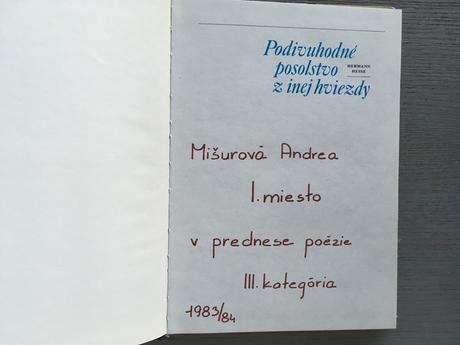 Podivuhodné
posolstvo
z inej hviezdy
HERMANN
HESSE
Mišurová Andrea
I. miesto
v prednese poézie
III. kategória
1983/84